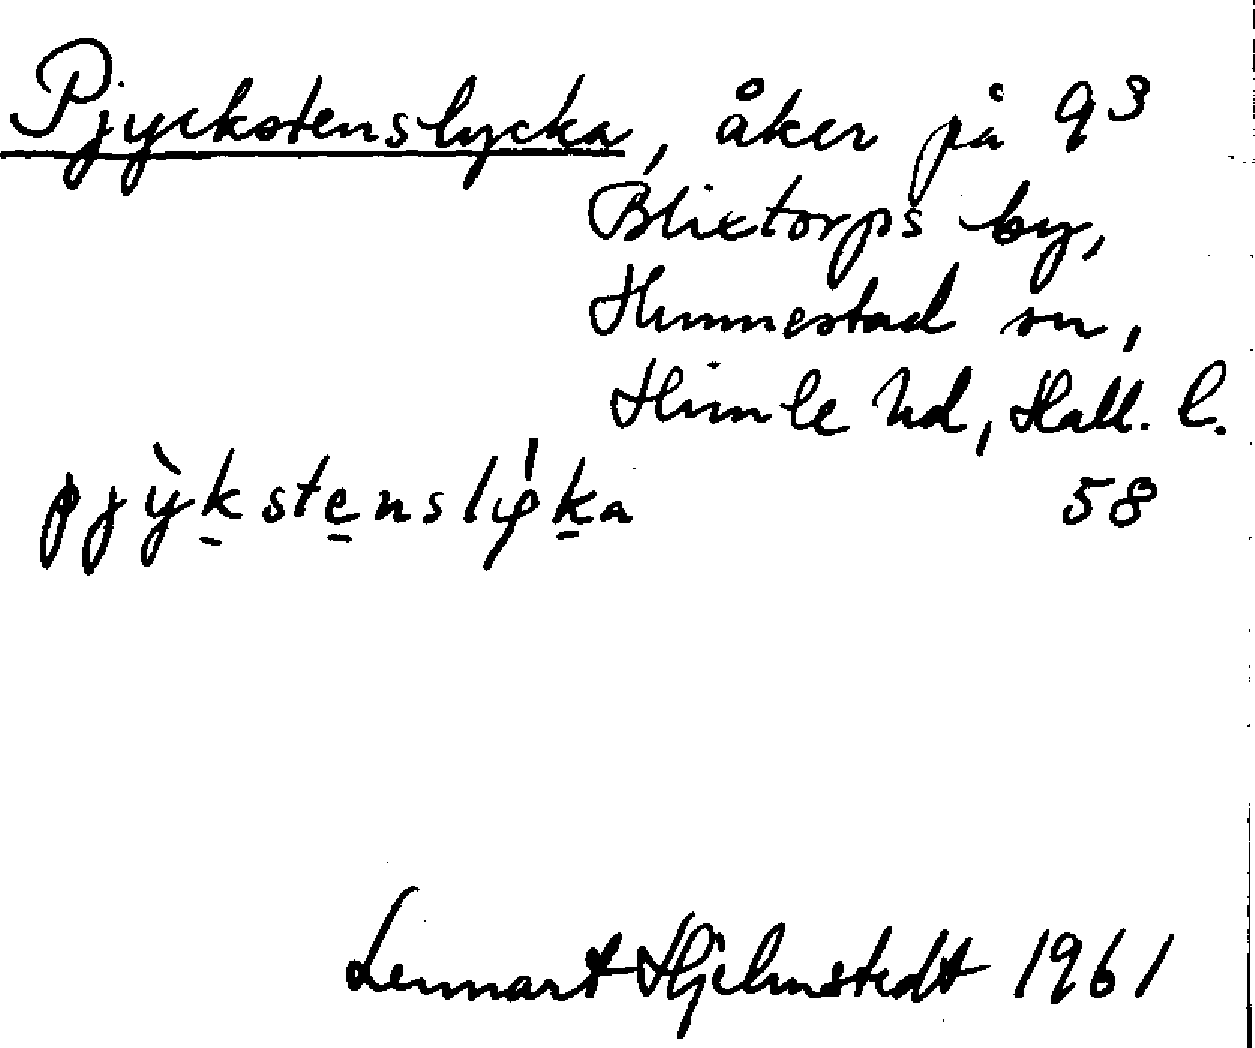 Pjyckstenslycka, åker på 9³
Blixtorps by,
Hunnestad sn,
Himle hd, Hall. l.
pjỳk̠ste̠nslýk̠a 58
Lennart Hjelmstedt 1961